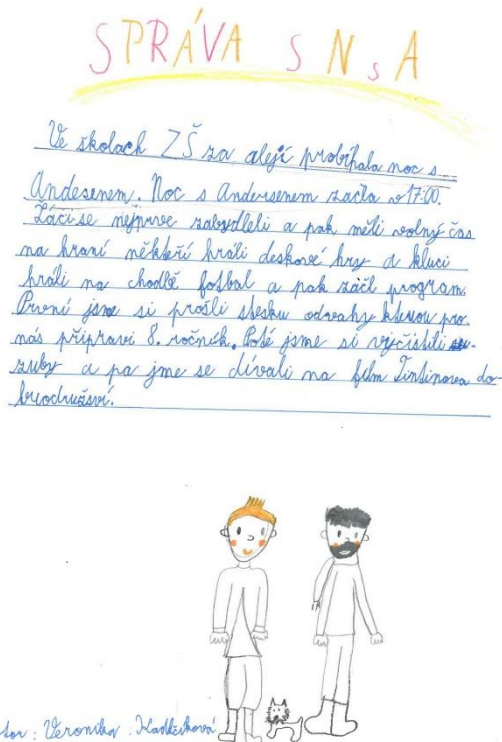 SPRÁVA S N s A
Ve školach ZŠ za alejí probíhala noc s
Andesenem. Noc s Andersenem začla v 17:00.
Žáci se nejprve zabydleli a pak měli volný čas
na hraní někteří hráli deskové hry a kluci
hráli na chodbě fotbal a pak záčl program.
První jsme si prošli stesku odvahy kterou pro
nás připravi 8. ročník. Poté jsme si vyčistili
zuby a pa jme se dívali na film Tintinova do-
breodružsví.
tor: Veronika